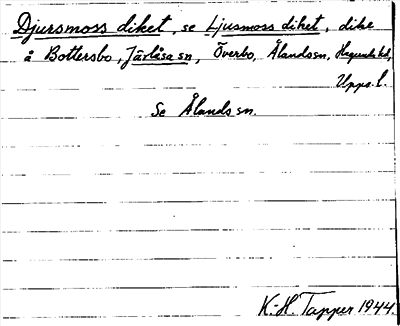 Djursmoss diket, se Ljusmoss diket, dike
å Bottersbo, Järlåsa sn, Överbo, Ålands sn, Hagunda hd,
Upps. l.
Se Ålands sn.
K.-H. Tapper 1944.